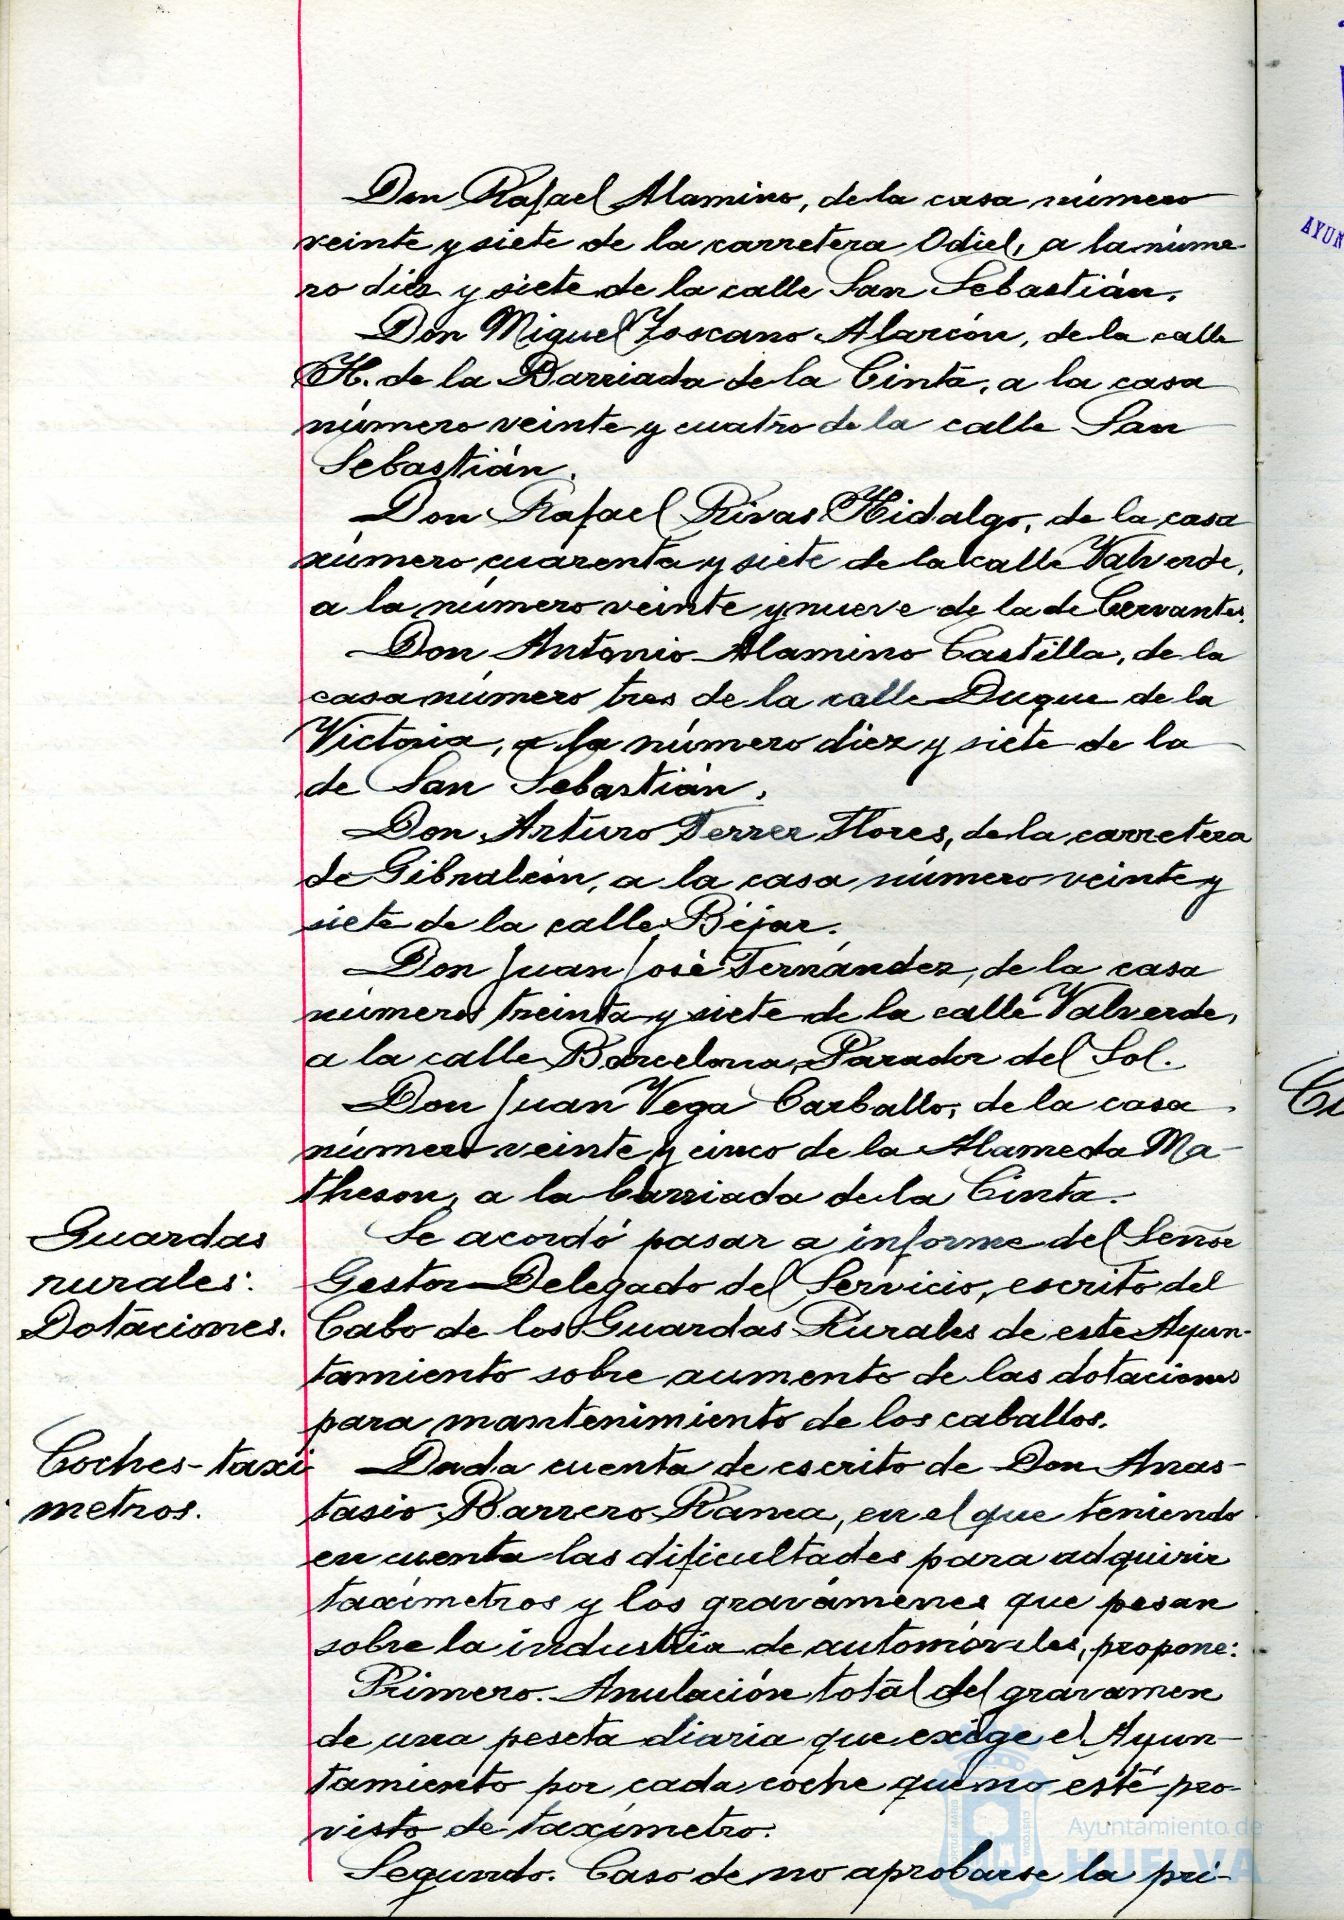 Don Rafael Alamino, de la casa número
veinte y siete de la carretera Odiel, a la núme-
ro diez y siete de la calle San Sebastián.
Don Miguel Toscano Alarcón, de la calle
H. de la Barriada de la Cinta, a la casa
número veinte y cuatro de la calle San
Sebastián.
Don Rafael Rivas Hidalgo, de la casa
número cuarenta y siete de la calle Valverde,
a la número veinte y nueve de la de Cervantes.
Don Antonio Alamino Castilla, de la
casa número tres de la calle Duque de la
Victoria, a la número diez y siete de la
de San Sebastián.
Don Arturo Ferrer Flores, de la carretera
de Gibraleón, a la casa número veinte y
siete de la calle Béjar.
Don Juan José Fernández, de la casa
número treinta y siete de la calle Valverde,
a la calle Barcelona, Parador del Sol.
Don Juan Vega Carballo, de la casa
número veinte y cinco de la Alameda Ma-
theson, a la barriada de la Cinta.
Guardas
rurales.
Dotaciones.
Se acordó pasar a informe del Señor
Gestor Delegado del Servicio, escrito del
Cabo de los Guardas Rurales de este Ayun-
tamiento sobre aumento de las dotaciones
para mantenimiento de los caballos.
Coches-taxi
metros.
Dada cuenta de escrito de Don Anas-
tasio Barrero Rama, en el que teniendo
en cuenta las dificultades para adquirir
taxímetros y los gravámenes que pesan
sobre la industria de automóviles, propone:
Primero. Anulación total del gravamen
de una peseta diaria que exige el Ayun-
tamiento por cada coche que no esté pro-
visto de taxímetro.
Segundo. Caso de no aprobarse la pri-
Ayuntamiento de
HUELVA
AYUN